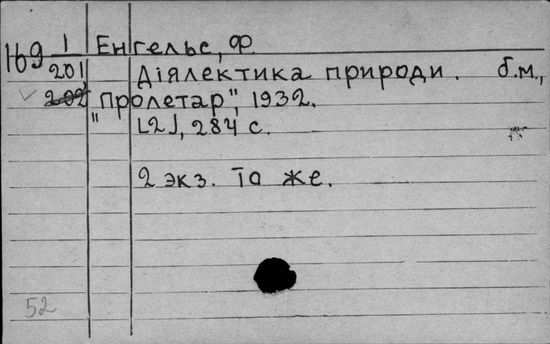 169 1 Енгельс, Ф.
201 Діялектика природи. б.м.,
202 "Пролетар", 1932.
[2], 284 с.
2 экз. Та же.
52